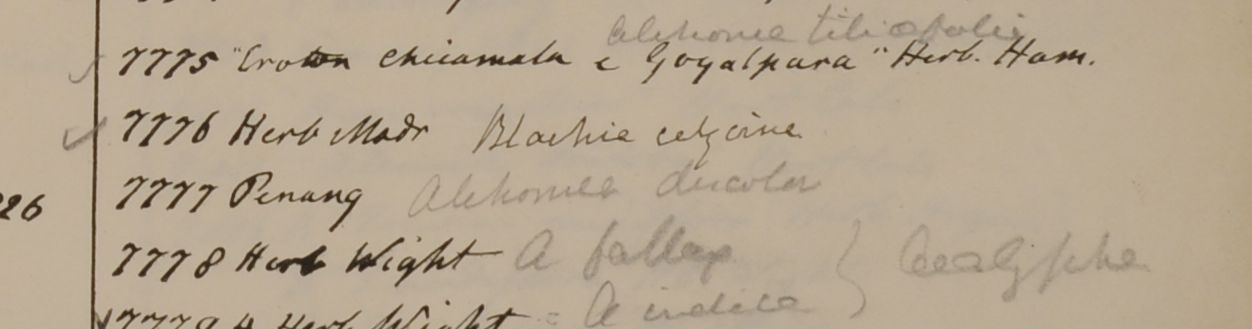 Alchornea tiliaefolia
7775 "Croton chicamala e Goyalpara" Herb. Ham.
7776 Herb Madr Blachia calycina
26 7777 Penang Alchornea discolor
7778 Herb Wight A fallax } Acalypha
7779 Herb Wight = A indica